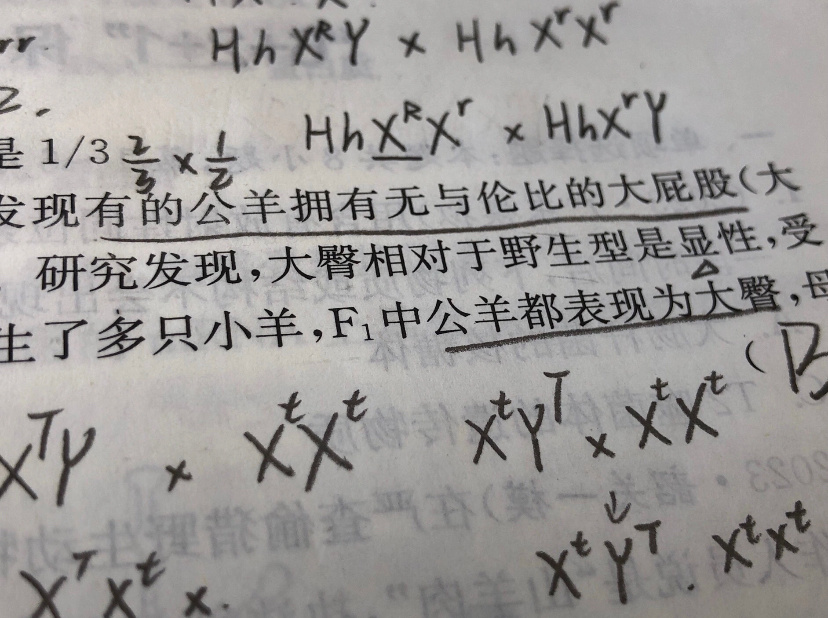 rr.
HhXᴿY × HhXʳXʳ
2.
HhXᴿXʳ × HhXʳY
是 1/3 2/3 × 1/2
发现有的公羊拥有无与伦比的大屁股(大
研究发现,大臀相对于野生型是显性,受
生了多只小羊,F₁中公羊都表现为大臀,母
( B
XᵀY × XᵗXᵗ XᵗYᵀ × XᵗXᵗ
↓
XᵀXᵗ ×. XᵗYᵀ. XᵗXᵗ